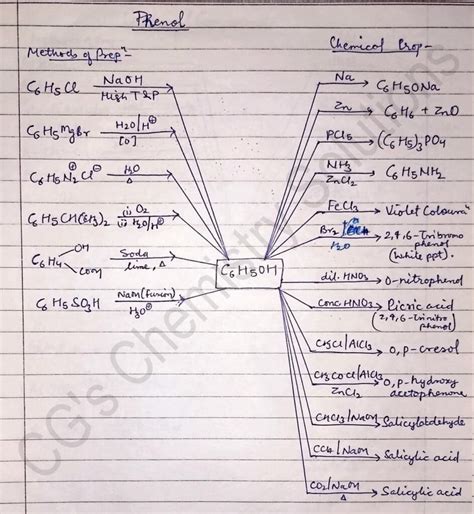 Phenol
Methods of Prepⁿ-
C6H5Cl NaOH High T & P
C6H5MgBr H2O/H⊕ [O]
C6H5N2⊕Cl⊖ H2O Δ
C6H5CH(CH3)2 (i) O2 (ii) H2O/H⊕
C6H4 OH COOH Soda lime, Δ
C6H5SO3H NaOH (Fusion) H3O⊕
C6H5OH
Chemical Prop-
Na C6H5ONa
Zn C6H6 + ZnO
PCl5 (C6H5)3PO4
NH3 ZnCl2 C6H5NH2
FeCl3 Violet Colourⁿ
Br2 H2O 2,4,6-Tribromo
phenol
(White ppt).
dil. HNO3 O-nitrophenol
Conc. HNO3 Picric acid
(2,4,6-Trinitro
phenol)
CH3Cl/AlCl3 O, p-cresol
CH3COCl/AlCl3 ZnCl2 O, p-hydroxy
acetophenone
CHCl3/NaOH Salicylaldehyde
CCl4/NaOH Salicylic acid
CO2/NaOH Δ Salicylic acid
CG's Chemistry Solutions